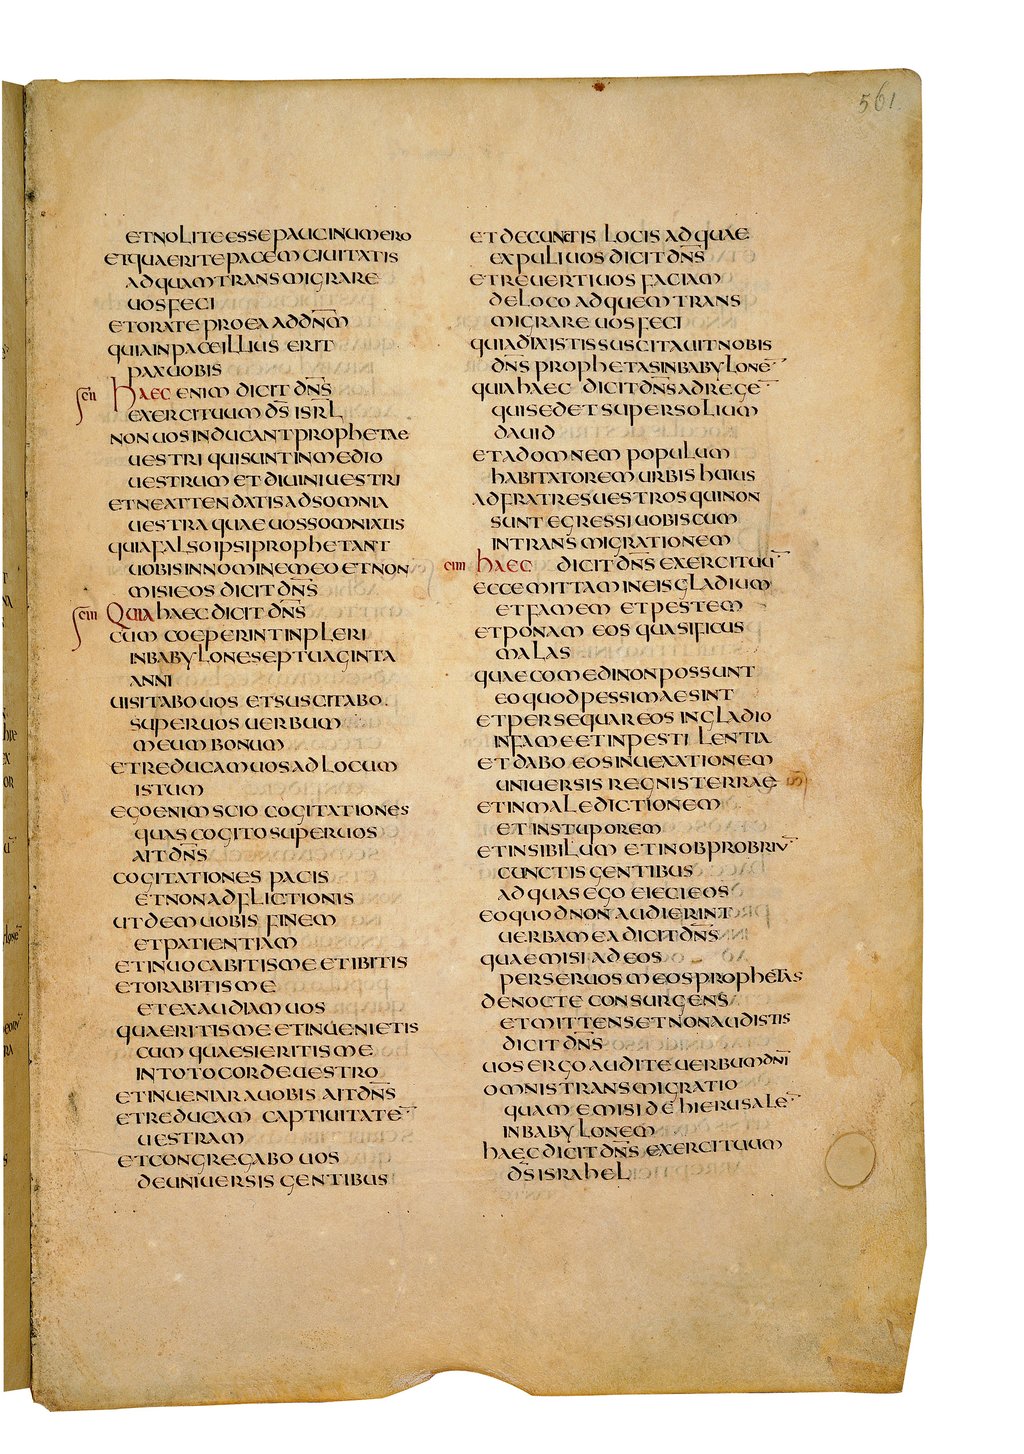 561
ET NOLITE ESSE PAUCI NUMERO
ET QUAERITE PACEM CIUITATIS
AD QUAM TRANSMIGRARE
UOS FECI
ET ORATE PRO EA AD DN̄M
QUIA IN PACE ILLIUS ERIT
PAX UOBIS
HAEC ENIM DICIT DN̄S
EXERCITUUM D̄S ISRL
NON UOS INDUCANT PROPHETAE
UESTRI QUI SUNT IN MEDIO
UESTRUM ET DIUINI UESTRI
ET NE ATTENDATIS AD SOMNIA
UESTRA QUAE UOS SOMNIATIS
QUIA FALSO IPSI PROPHETANT
UOBIS IN NOMINE MEO ET NON
MISI EOS DICIT DN̄S
QUIA HAEC DICIT DN̄S
CUM COEPERINT INPLERI
IN BABYLONE SEPTUAGINTA
ANNI
UISITABO UOS ET SUSCITABO
SUPER UOS UERBUM
MEUM BONUM
ET REDUCAM UOS AD LOCUM
ISTUM
EGO ENIM SCIO COGITATIONES
QUAS COGITO SUPER UOS
AIT DN̄S
COGITATIONES PACIS
ET NON ADFLICTIONIS
UT DEM UOBIS FINEM
ET PATIENTIAM
ET INUOCABITIS ME ET IBITIS
ET ORABITIS ME
ET EXAUDIAM UOS
QUAERITIS ME ET INUENIETIS
CUM QUAESIERITIS ME
IN TOTO CORDE UESTRO
ET INUENIAR A UOBIS AIT DN̄S
ET REDUCAM CAPTIUITATĒ
UESTRAM
ET CONGREGABO UOS
DE UNIUERSIS GENTIBUS
ET DE CUNCTIS LOCIS AD QUAE
EXPULI UOS DICIT DN̄S
ET REUERTI UOS FACIAM
DE LOCO AD QUEM TRANS
MIGRARE UOS FECI
QUIA DIXISTIS SUSCITAUIT NOBIS
DN̄S PROPHETAS IN BABYLONĒ
QUIA HAEC DICIT DN̄S AD REGĒ
QUI SEDET SUPER SOLIUM
DAUID
ET AD OMNEM POPULUM
HABITATOREM URBIS HUIUS
AD FRATRES UESTROS QUI NON
SUNT EGRESSI UOBISCUM
IN TRANSMIGRATIONEM
HAEC DICIT DN̄S EXERCITUŪ
ECCE MITTAM IN EIS GLADIUM
ET FAMEM ET PESTEM
ET PONAM EOS QUASI FICUS
MALAS
QUAE COMEDI NON POSSUNT
EO QUOD PESSIMAE SINT
ET PERSEQUAR EOS IN GLADIO
IN FAME ET IN PESTILENTIA
ET DABO EOS IN UEXATIONEM
UNIUERSIS REGNIS TERRAE
ET IN MALEDICTIONEM
ET IN STUPOREM
ET IN SIBILUM ET IN OBPROBRIŪ
CUNCTIS GENTIBUS
AD QUAS EGO EIECI EOS
EO QUOD NON AUDIERINT
UERBA MEA DICIT DN̄S
QUAE MISI AD EOS
PER SERUOS MEOS PROPHETAS
DE NOCTE CONSURGENS
ET MITTENS ET NON AUDISTIS
DICIT DN̄S
UOS ERGO AUDITE UERBUM DN̄I
OMNIS TRANSMIGRATIO
QUAM EMISI DE HIERUSALĒ
IN BABYLONEM
HAEC DICIT DN̄S EXERCITUUM
D̄S ISRAHEL